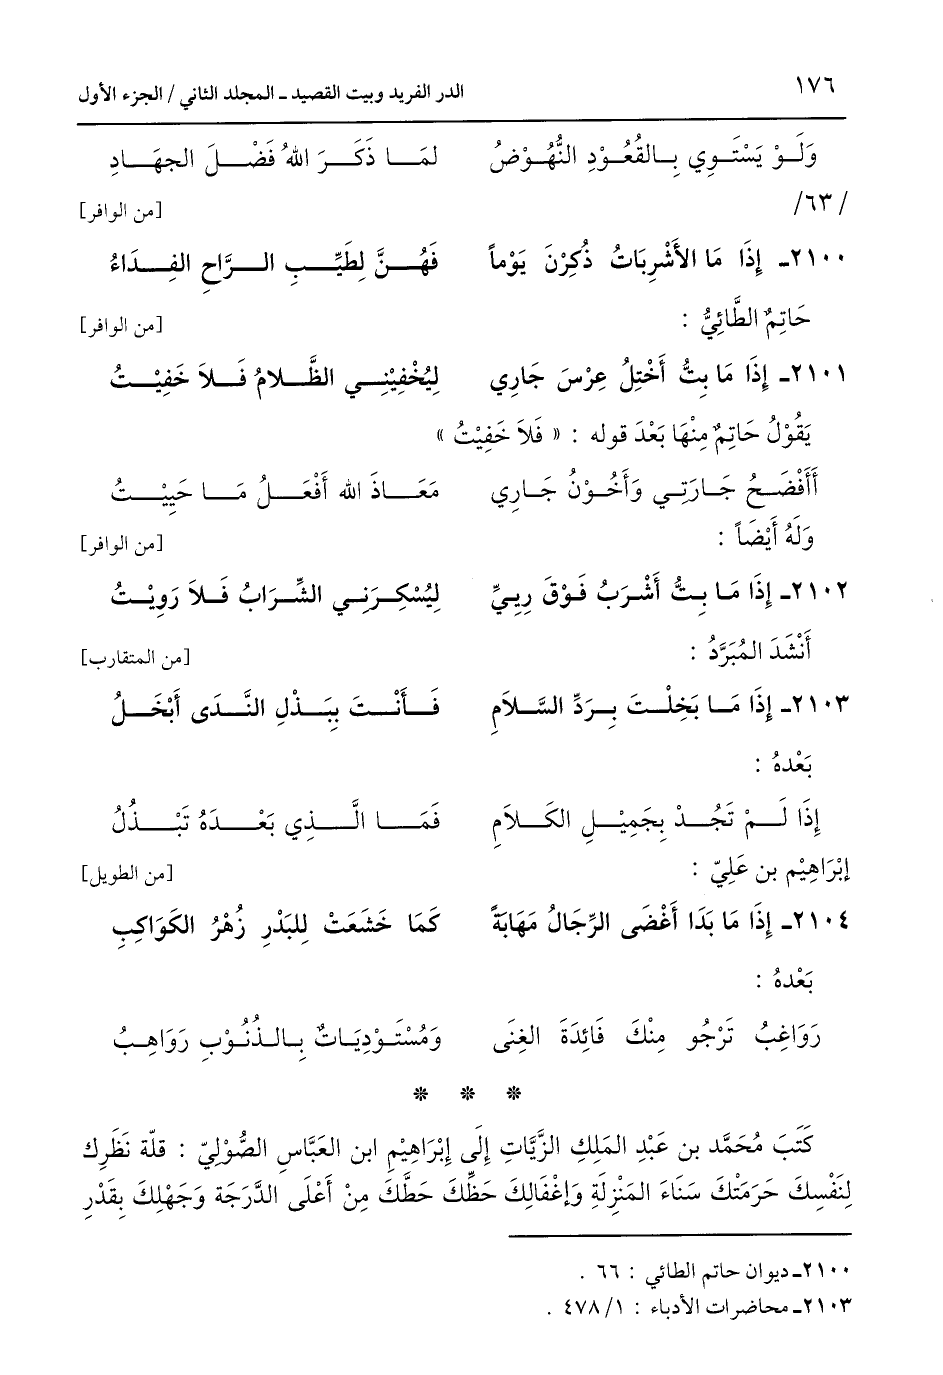 ١٧٦ الدر الفريد وبيت القصيد ـ المجلد الثاني / الجزء الأول
وَلَوْ يَسْتَوِي بِالقُعُوْدِ النُّهُوْضُ لَمَا ذَكَرَ اللهُ فَضْلَ الجِهَادِ
/٦٣/ [من الوافر]
٢١٠٠ـ إِذَا مَا الأَشْرِبَاتُ ذُكِرْنَ يَوْماً فَهُنَّ لِطَيِّبِ الرَّاحِ الفِدَاءُ
حَاتِمٌ الطَّائِيُّ : [من الوافر]
٢١٠١ـ إِذَا مَا بِتُّ أَخْتِلُ عِرْسَ جَارِي لِيُخْفِيْنِي الظَّلامُ فَلاَ خَفِيْتُ
يَقُوْلُ حَاتِمٌ مِنْهَا بَعْدَ قوله : « فَلاَ خَفِيْتُ »
أَأَفْضَحُ جَارَتِي وَأَخُوْنُ جَارِي مَعَاذَ الله أَفْعَلُ مَا حَيِيْتُ
وَلَهُ أَيْضَاً : [من الوافر]
٢١٠٢ـ إِذَا مَا بِتُّ أَشْرَبُ فَوْقَ رِيِيِّ لِيُسْكِرَنِي الشَّرَابُ فَلاَ رَوِيْتُ
أَنْشَدَ المُبَرَّدُ : [من المتقارب]
٢١٠٣ـ إِذَا مَا بَخِلْتَ بِرَدِّ السَّلاَمِ فَأَنْتَ بِبَذْلِ النَّدَى أَبْخَلُ
بَعْدهُ :
إِذَا لَمْ تَجُدْ بِجَمِيْلِ الكَلاَمِ فَمَا الَّذِي بَعْدَهُ تَبْذُلُ
إبْرَاهِيْم بن عَلِيّ : [من الطويل]
٢١٠٤ـ إِذَا مَا بَدَا أَغْضَى الرِّجَالُ مَهَابَةً كَمَا خَشَعَتْ لِلبَدْرِ زُهْرُ الكَوَاكِبِ
بَعْدهُ :
رَوَاغِبُ تَرْجُو مِنْكَ فَائِدَةَ الغِنَى وَمُسْتَوْدِيَاتٌ بِالذُّنُوْبِ رَوَاهِبُ
* * *
كَتَبَ مُحَمَّد بن عَبْدِ المَلِكِ الزَّيَّاتِ إِلَى إِبْرَاهِيْمِ ابن العَبَّاسِ الصُّوْلِيّ : قلّة نَظَرِك
لِنَفْسِكَ حَرَمَتْكَ سَنَاءَ المَنْزِلَةِ وَإِغْفَالِكَ حَظِّكَ حَطَّكَ مِنْ أَعْلَى الدَّرَجَة وَجَهْلِكَ بِقَدْرِ
٢١٠٠ـ ديوان حاتم الطائي : ٦٦ .
٢١٠٣ـ محاضرات الأدباء : ١/ ٤٧٨ .